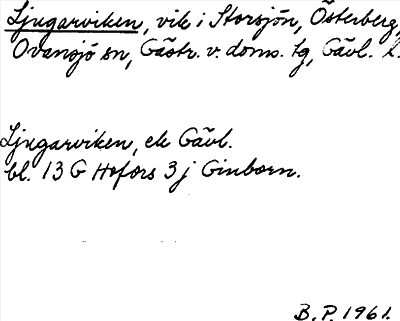 Ljugarviken, vik i Storsjön, Österberg,
Ovansjö sn, Gästr. v. doms. tg, Gävl. l.
Ljugarviken, ek Gävl.
bl. 13 G Hofors 3 j Ginborn.
B. P. 1961.